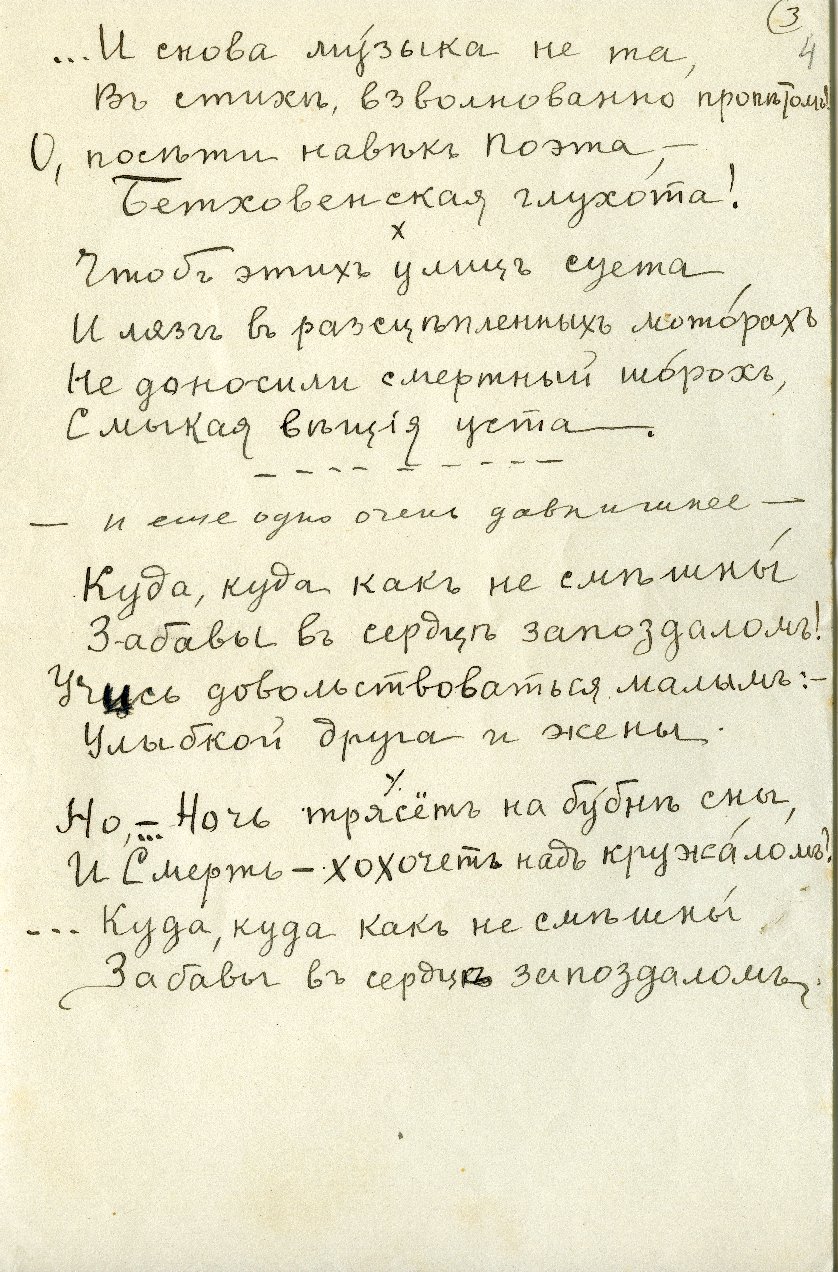 3
4
...И снова му́зыка не та,
Въ стихѣ, взволнованно пропѣтомъ!
О, посѣти навѣкъ поэта, –
Бетховенская глухо́та!
Чтобъ этихъ улицъ суета
И лязгъ въ разсцѣпленныхъ мото́рахъ
Не доносили смертный шо́рохъ,
Смыкая вѣщія уста —.
– – – – – – – –
— и еще одно очень давнишнее —
Куда, куда какъ не смѣшны́
Забавы въ сердцѣ запоздаломъ!
Учись довольствоваться малымъ: –
Улыбкой друга и жены.
Но, – ... Ночь трясётъ на бу́бнѣ сны,
И Смерть – хохочетъ надъ кружа́ломъ!
... Куда, куда какъ не смѣшны́
Забавы въ сердцѣ запоздаломъ.